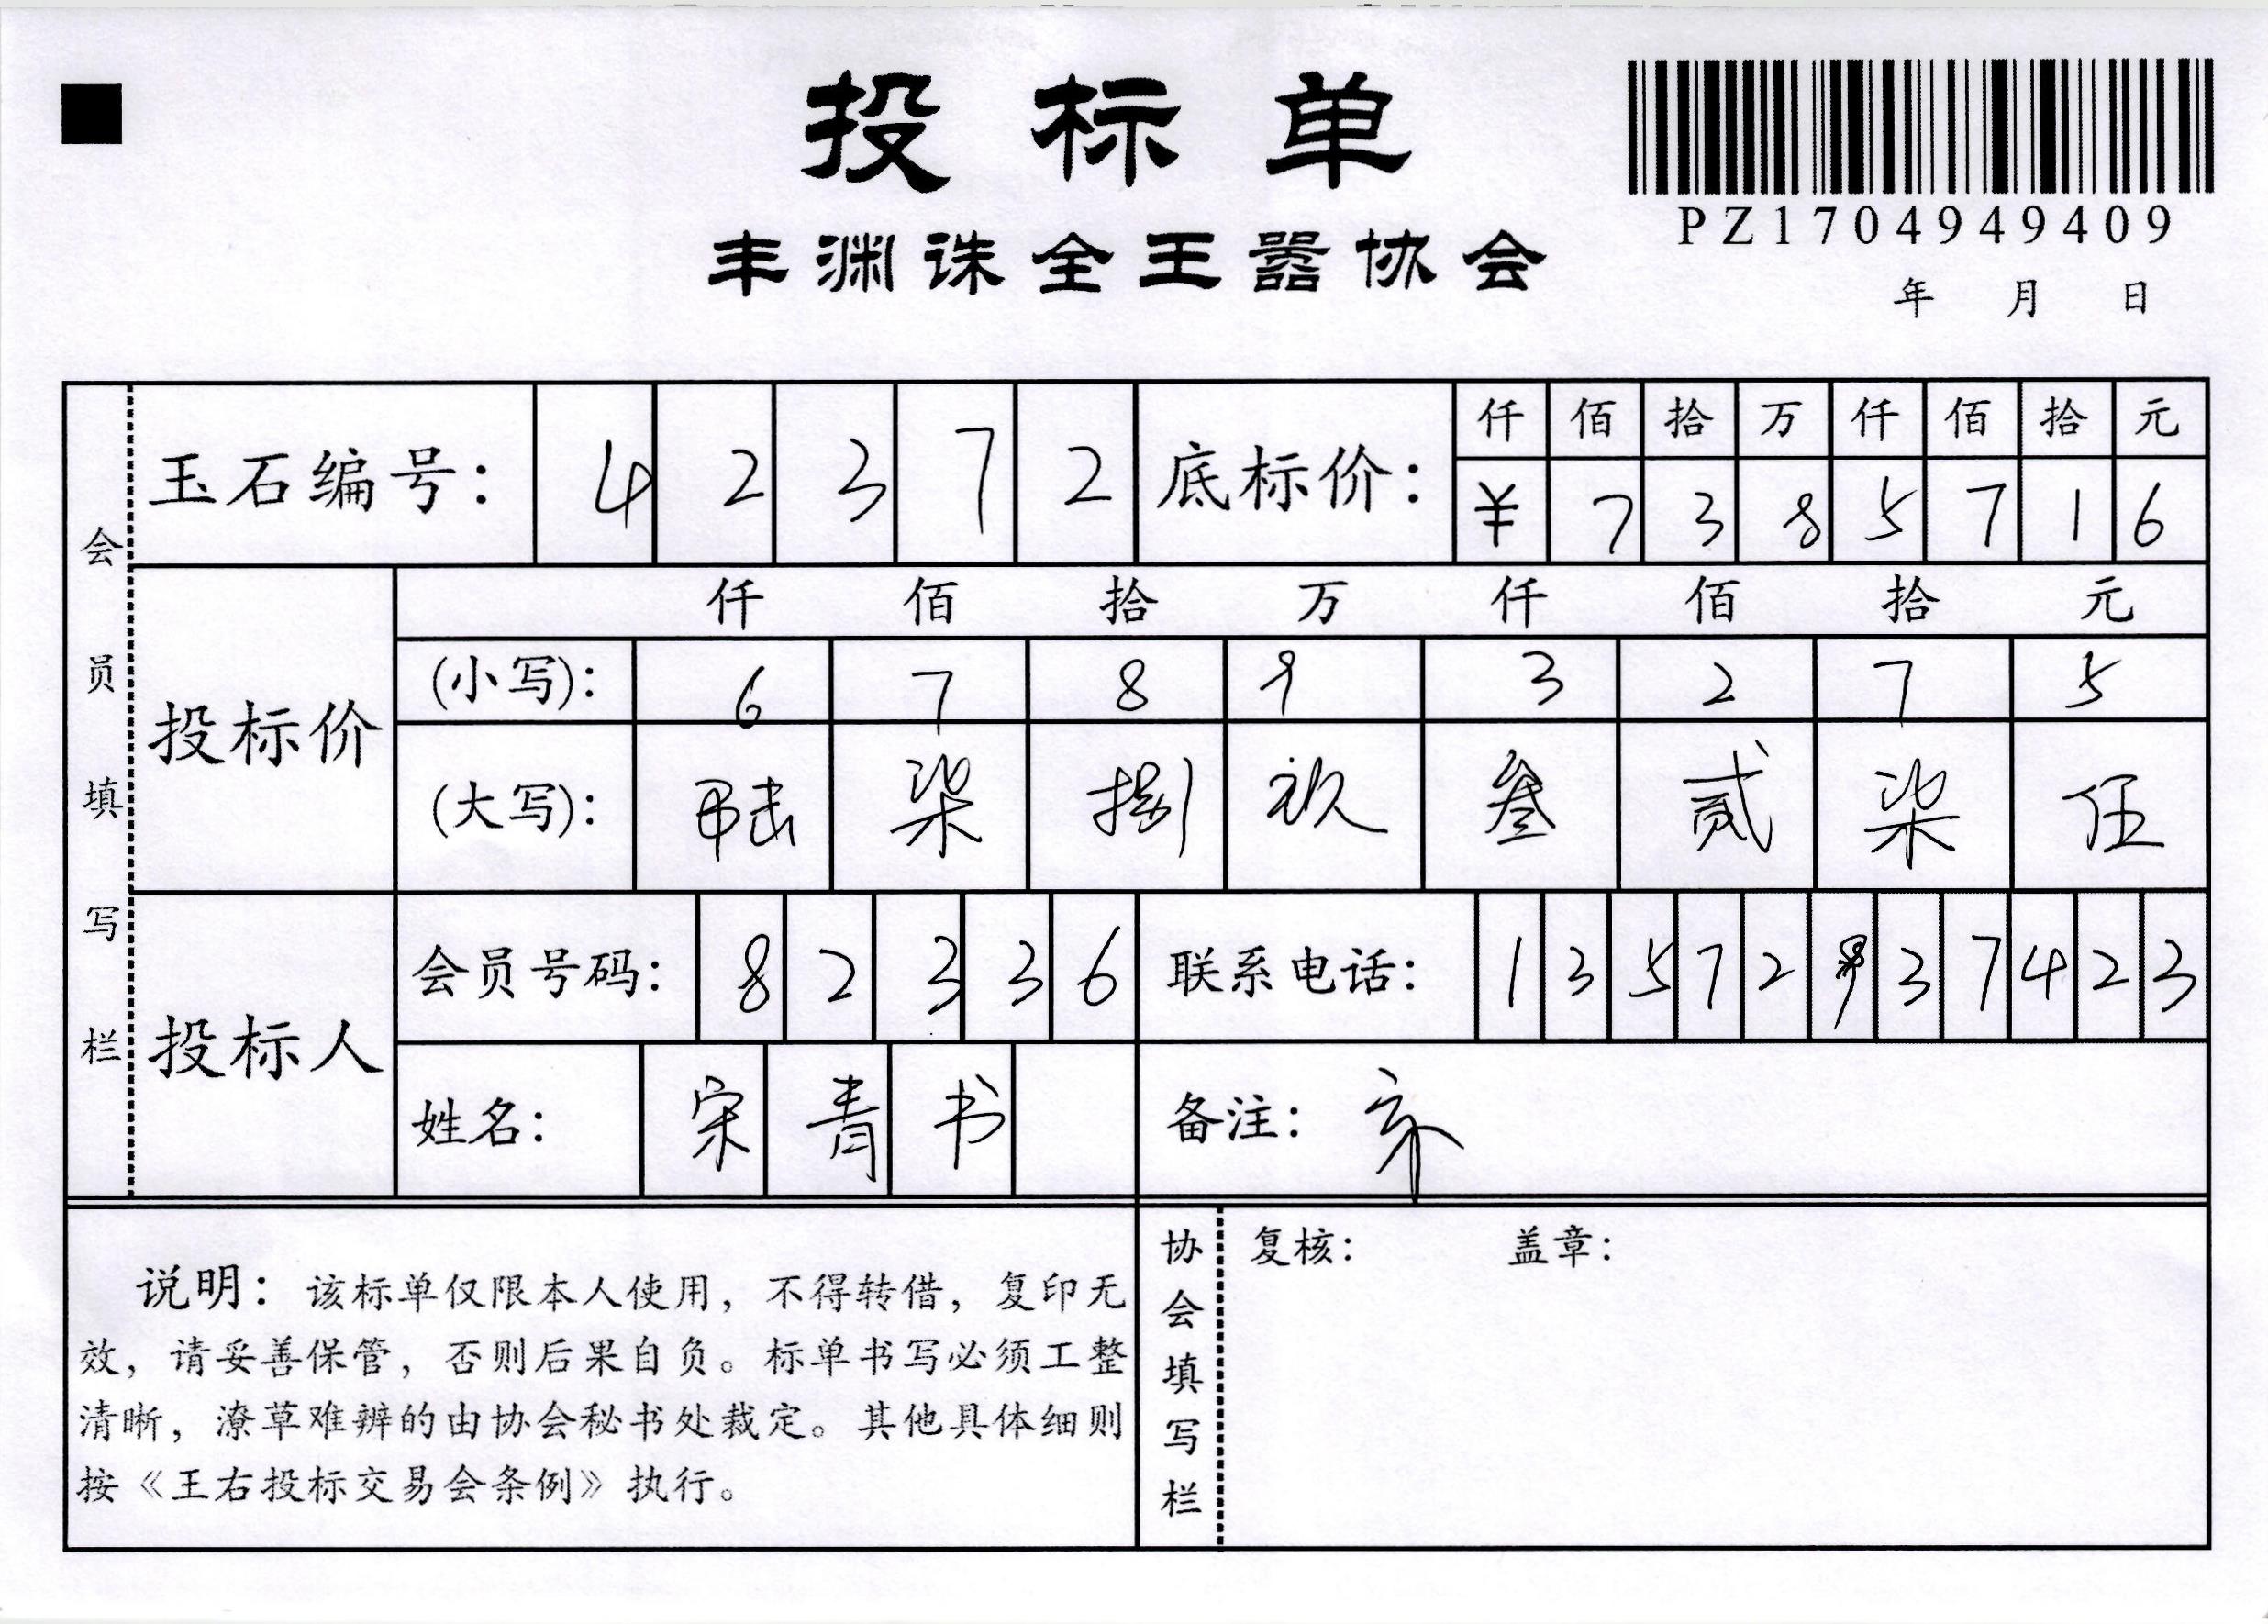 投标单
丰渊诛全王嚣协会
PZ1704949409
年 月 日
会员填写栏
玉石编号： 4 2 3 7 2
底标价： 仟 佰 拾 万 仟 佰 拾 元
¥ 7 3 8 5 7 1 6
投标价
仟 佰 拾 万 仟 佰 拾 元
(小写)： 6 7 8 9 3 2 7 5
(大写)： 陆 柒 捌 玖 叁 贰 柒 伍
投标人
会员号码： 8 2 3 3 6
联系电话： 1 3 5 7 2 3 7 4 2 3
姓名： 宋 青 书
备注：
说明：该标单仅限本人使用，不得转借，复印无
效，请妥善保管，否则后果自负。标单书写必须工整
清晰，潦草难辨的由协会秘书处裁定。其他具体细则
按《王右投标交易会条例》执行。
协会填写栏
复核： 盖章：